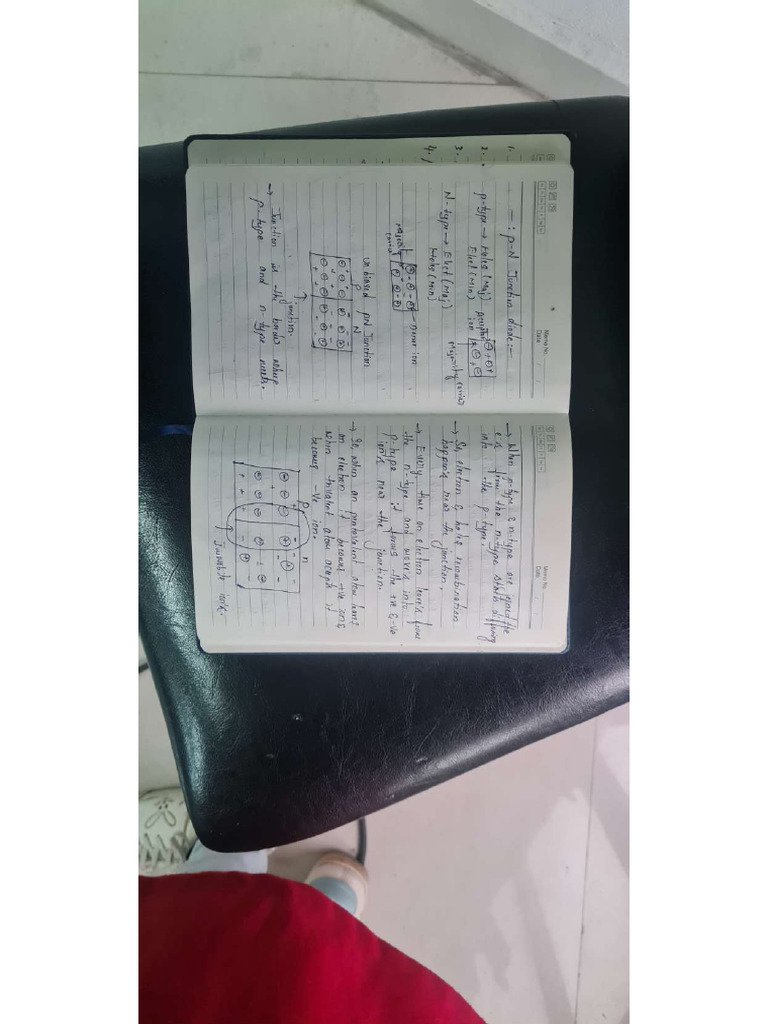 Memo No.
Date
1.
2.
3.
4.
-: p-N Junction diode:-
p-type → Holes (Maj)
Elect (Min)
ion
Majority
N-type → Elect (Maj)
Hole (Min)
Donor ion
Majority
unbiased pN Junction
P N
Junction.
→ Junction is the border
p-type and n-type
Memo No.
Date
→ When p-type & n-type are joined the
e's from the n-type starts diffusing
into the p-type.
→ So, electron & hole recombination
happen's near the junction.
→ Every time an electron
the n-type and moves into
p-type it forms the +ve & -ve
ion's near the junction.
→ So, when an pentavalent atom
an electron it becomes +ve ion &
when trivalent atom accept it
becomes -ve ion.
P n
Immobile ions.